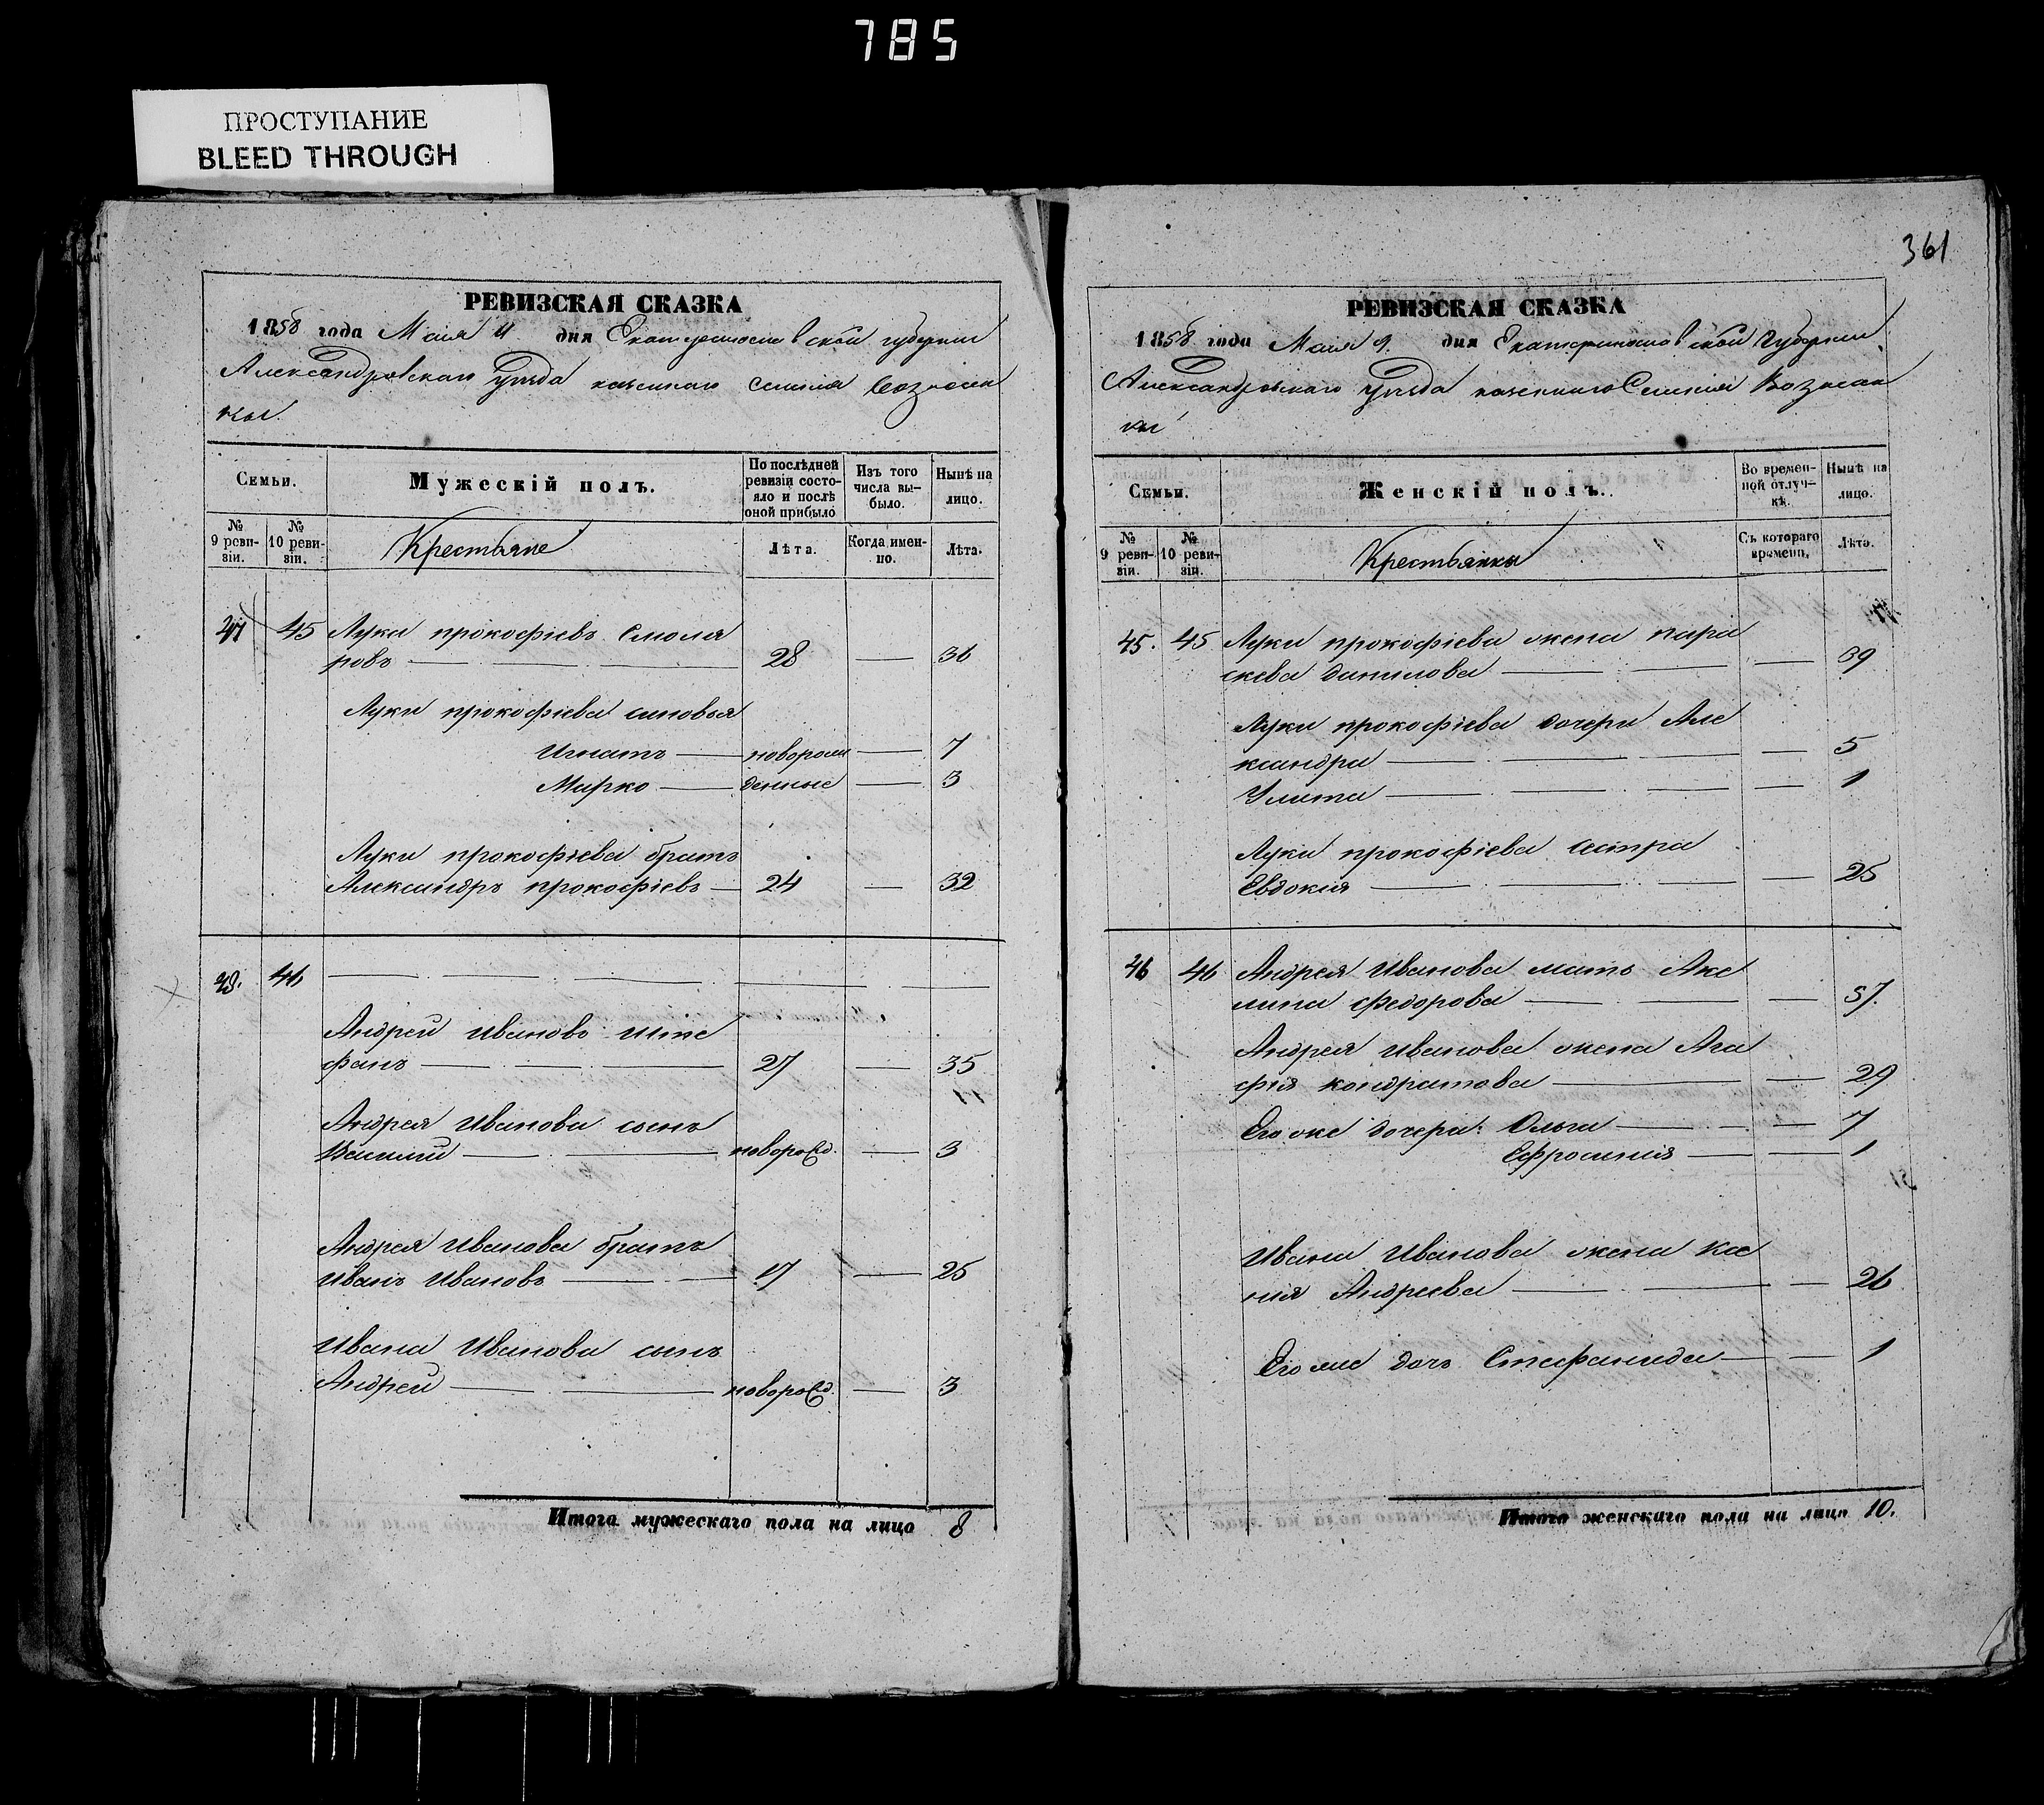 785
ПРОСТУПАНИЕ
BLEED THROUGH
361
РЕВИЗСКАЯ СКАЗКА
1858 года Маія дня Екатеринославской губерніи
Александровскаго уѣзда казеннаго селенія Вознесен
ки.
Семьи.
Мужескій полъ.
По послѣдней ревизіи состо-
яло и послѣ
оной прибыло
Изъ того
числа вы-
было.
Нынѣ на
лицо.
№
9 реви-
зіи.
№
10 реви-
зіи.
Крестьяне
Лѣта.
Когда имен-
но.
Лѣта.
47 45 Лука прокофіевъ Смоля
ровъ 28 36
Луки прокофіева сыновья
Игнатъ новорож 7
Марко денные 3
Луки прокофіева братъ
Александръ прокофіевъ 24 32
48. 46
Андрей Ивановъ Ште
фанъ 27 35
Андрея Иванова сынъ
Василий новорожд. 3
Андрея Иванова братъ
Иванъ Ивановъ 17 25
Ивана Иванова сынъ
Андрей новорожд. 3
Итого мужескаго пола на лицо 8
РЕВИЗСКАЯ СКАЗКА
1858 года Маія 9. дня Екатеринославской Губерніи
Александровскаго уѣзда казеннаго Селенія Вознесен
ки
Семьи.
Женскій полъ.
Во времен-
ной отлуч-
кѣ.
Нынѣ на
лицо.
№
9 реви-
зіи.
№
10 реви-
зіи.
Крестьянки
Съ котораго
времени.
Лѣта.
45. 45 Луки прокофіева жена пара
скева данилова 39
Луки прокофіева дочери Але
ксандра 5
Улита 1
Луки прокофіева сестра
Евдокия 25
46 46 Андрея Иванова мать Аке
лина федорова 57.
Андрея Иванова жена Ага
фия кондратова 29
Его же дочери: Ольга 7
Ефросиния 1
Ивана Иванова жена Ксе
ния Андреева 26
Его же дочь Стефанида 1
Итого женскаго пола на лицо 10.